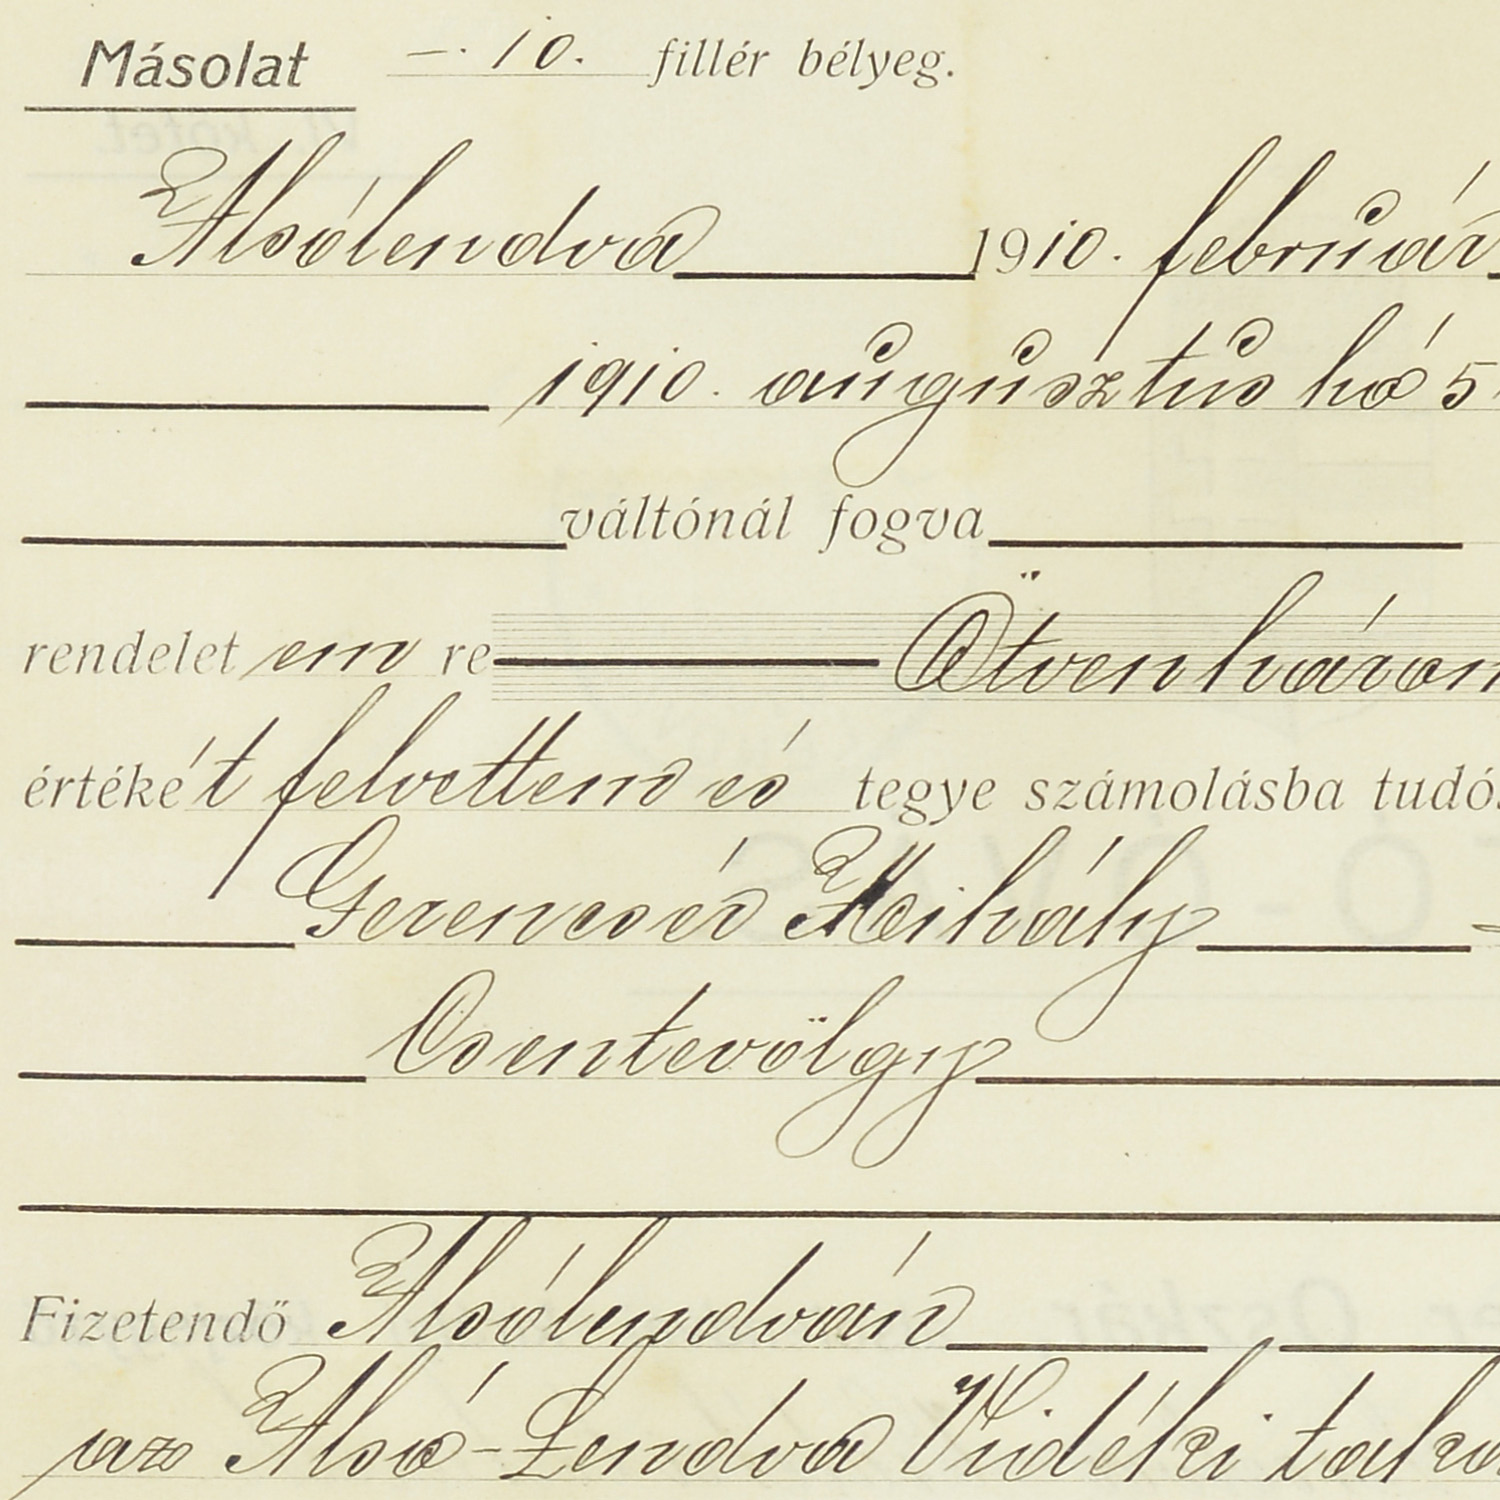 Másolat —. 10. fillér bélyeg.
Alsólendva 1910. február
1910. augusztus hó 5
váltónál fogva
rendelet em re Ötvenhárom
értéké't felvettem és tegye számolásba tudós
Gerencsér Mihály
Csentevölgy
Fizetendő Alsólendván
az Alsó-Lendva Vidéki taka